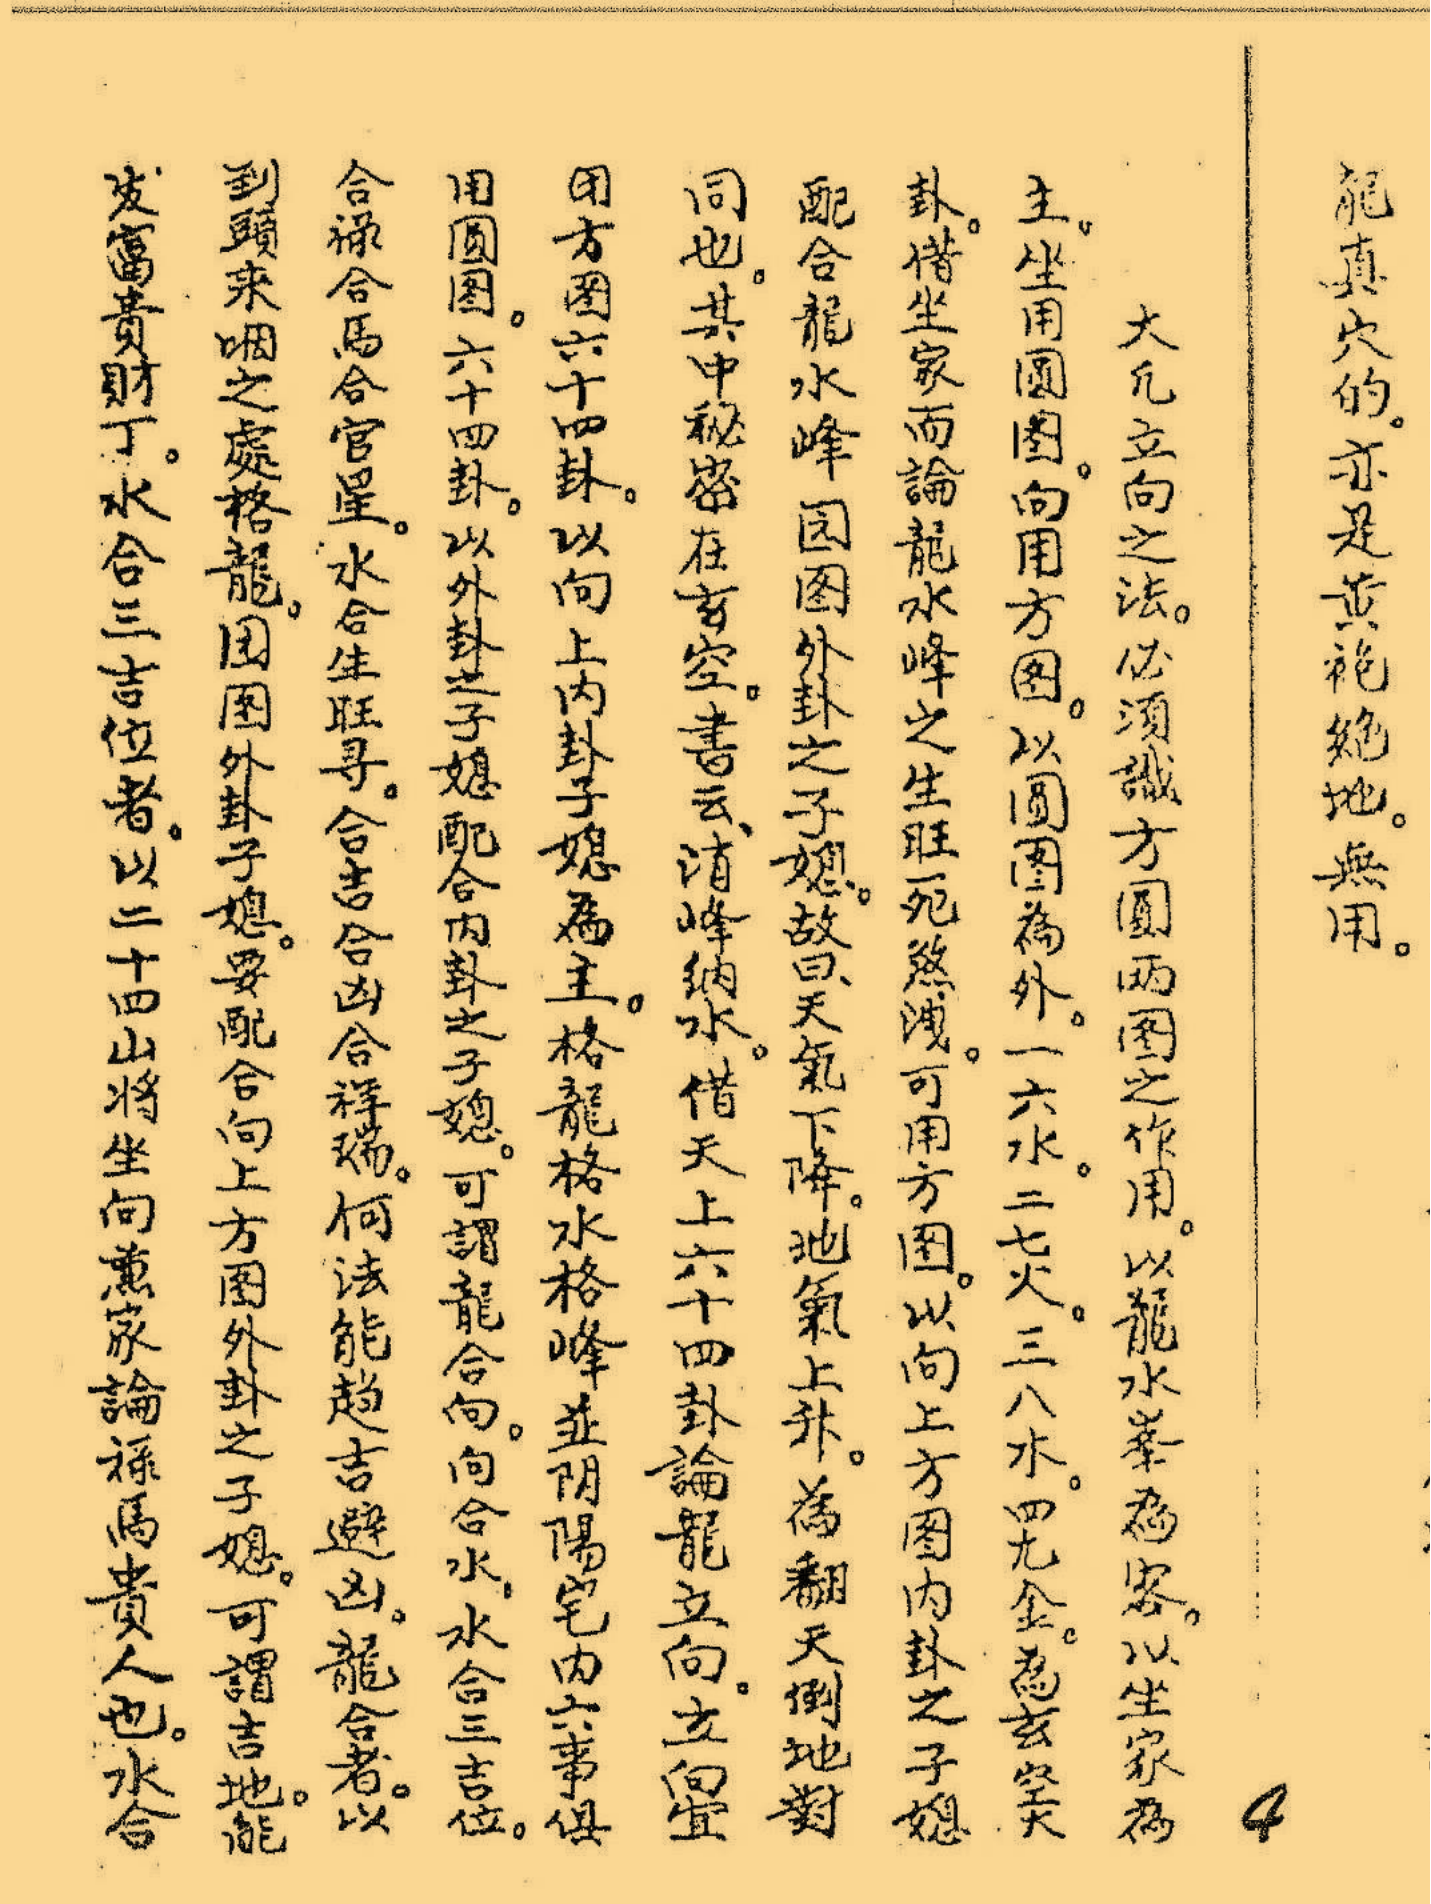 龍真穴的。亦是黄袍絶地。無用。
大凡立向之法。必須識方圓兩图之作用。以龍水峯為客。以坐家為
主。坐用圓图。向用方图。以圓图為外。一六水。二七火。三八水。四九金。為玄空大
卦。借坐家而論龍水峰之生旺死煞洩。可用方图。以向上方图内卦之子媳
配合龍水峰园图外卦之子媳。故曰、天氣下降。地氣上升。為翻天倒地對
同也。其中秘密在玄空。書云、消峰納水。借天上六十四卦論龍立向。立向宜
用方图六十四卦。以向上内卦子媳為主。格龍格水格峰並阴陽宅内六事俱
用圓图。六十四卦。以外卦之子媳配合内卦之子媳。可謂龍合向。向合水、水合三吉位。
合禄合馬合官星。水合生旺寻。合吉合凶合祥瑞。何法能趋吉避凶。龍合者。以
到頭来咽之處格龍。园图外卦子媳。要配合向上方图外卦之子媳。可謂吉地。能
发富貴財丁。水合三吉位者。以二十四山将坐向蕙家論禄馬貴人也。水合
4